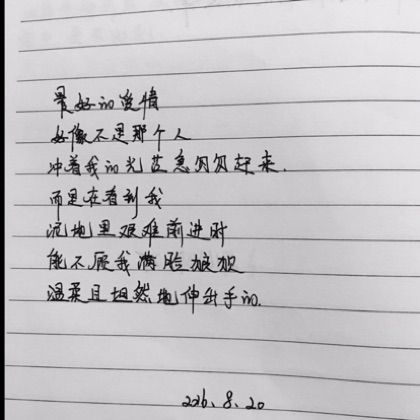 最好的爱情
好像不是那个人
冲着我的光芒急匆匆起来.
而是在看到我
泥地里艰难前进时
能不厌我满脸狼狈
温柔且坦然地伸出手的.
2016.8.20